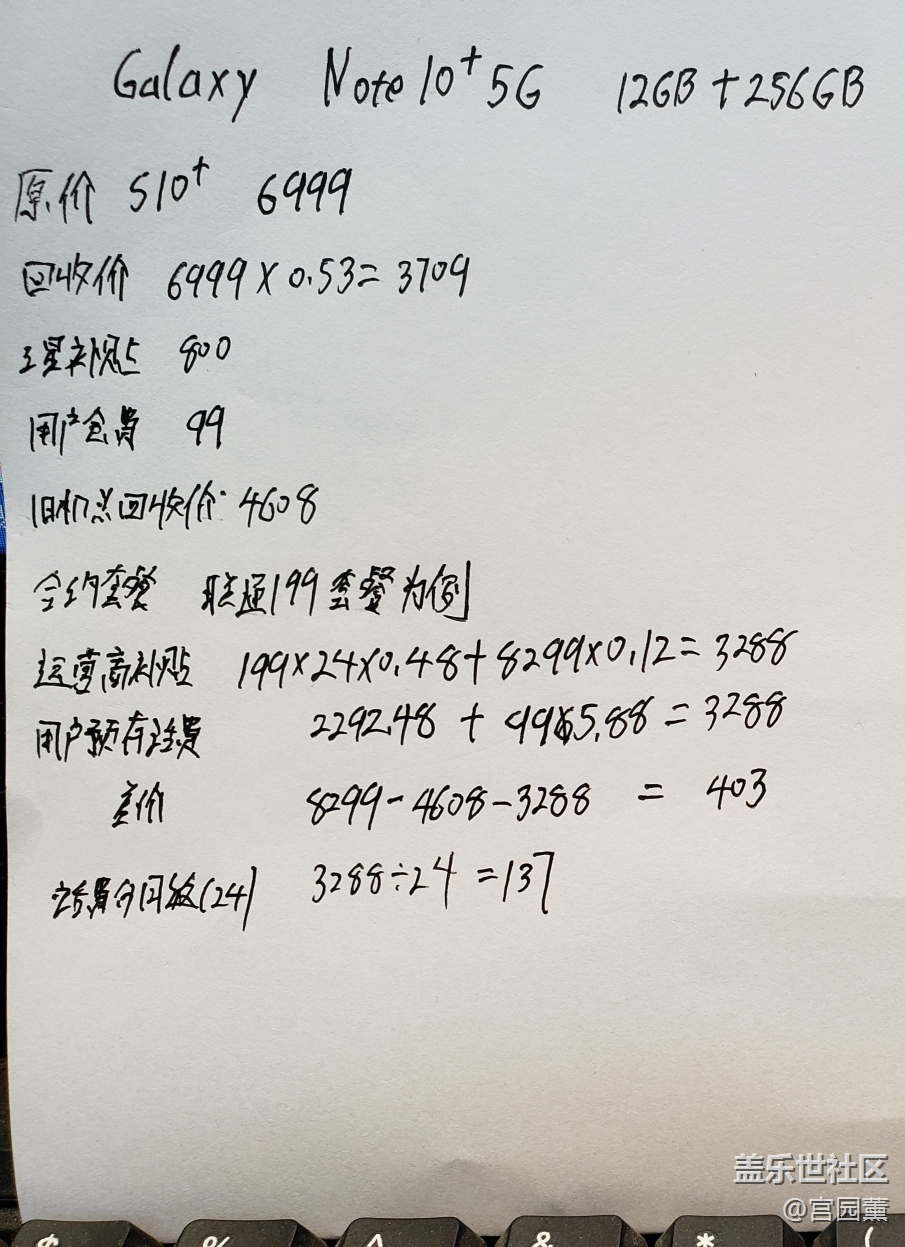 Galaxy Note 10+ 5G 12GB + 256GB
原价 S10+ 6999
回收价 6999 × 0.53 = 3709
三星补贴 800
用户会费 99
旧机总回收价 4608
合约套餐 联通199套餐为例
运营商补贴 199×24×0.48+8299×0.12=3288
用户预存话费 2292.48 + 995.88 = 3288
差价 8299-4608-3288 = 403
话费分回缴(24) 3288÷24 =137
盖乐世社区
@官园薰